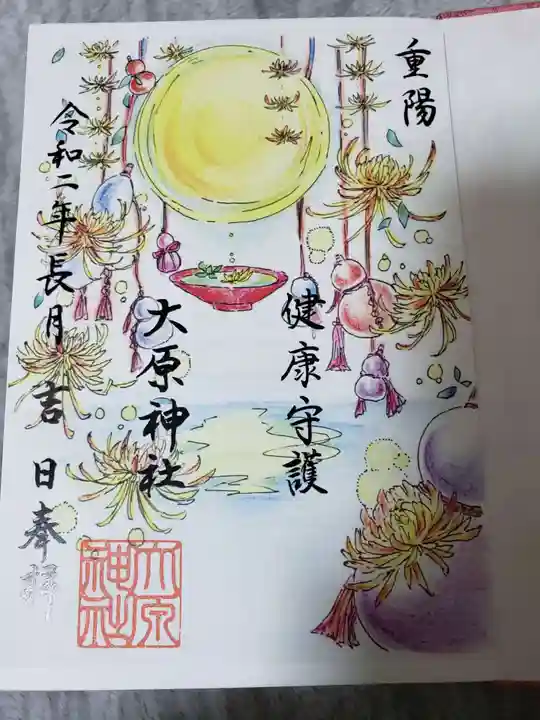 重陽
健康守護
大原神社
令和二年長月吉日奉拝
大原
神社